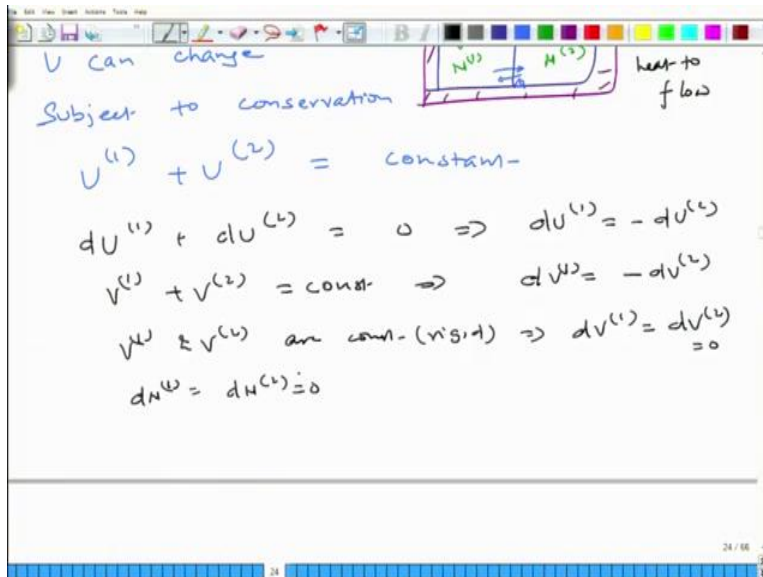 File Edit View Insert Actions Tools Help
B I
U can change
N⁽¹⁾ N⁽²⁾
heat to
flow
Subject to conservation
U⁽¹⁾ + U⁽²⁾ = constant
dU⁽¹⁾ + dU⁽²⁾ = 0 => dU⁽¹⁾ = - dU⁽²⁾
V⁽¹⁾ + V⁽²⁾ = const => dV⁽¹⁾ = - dV⁽²⁾
V⁽¹⁾ & V⁽²⁾ are const. (rigid) => dV⁽¹⁾ = dV⁽²⁾
= 0
dN⁽¹⁾ = dN⁽²⁾ = 0
24 / 66
24